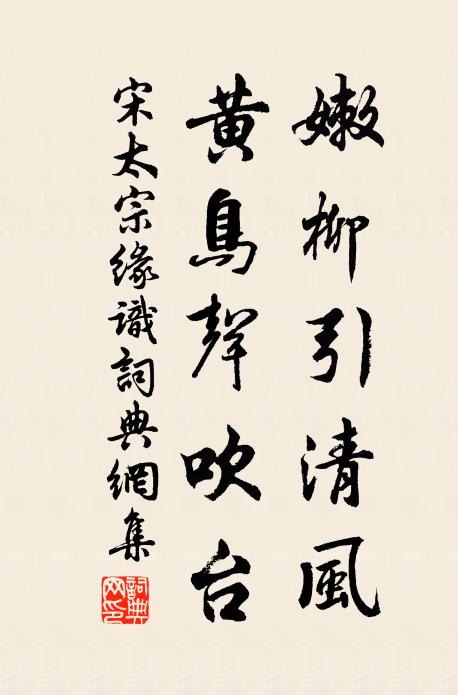 嫩柳引清風
黃鳥聲吹台
宋太宗緣識詞典網集
詞典網印